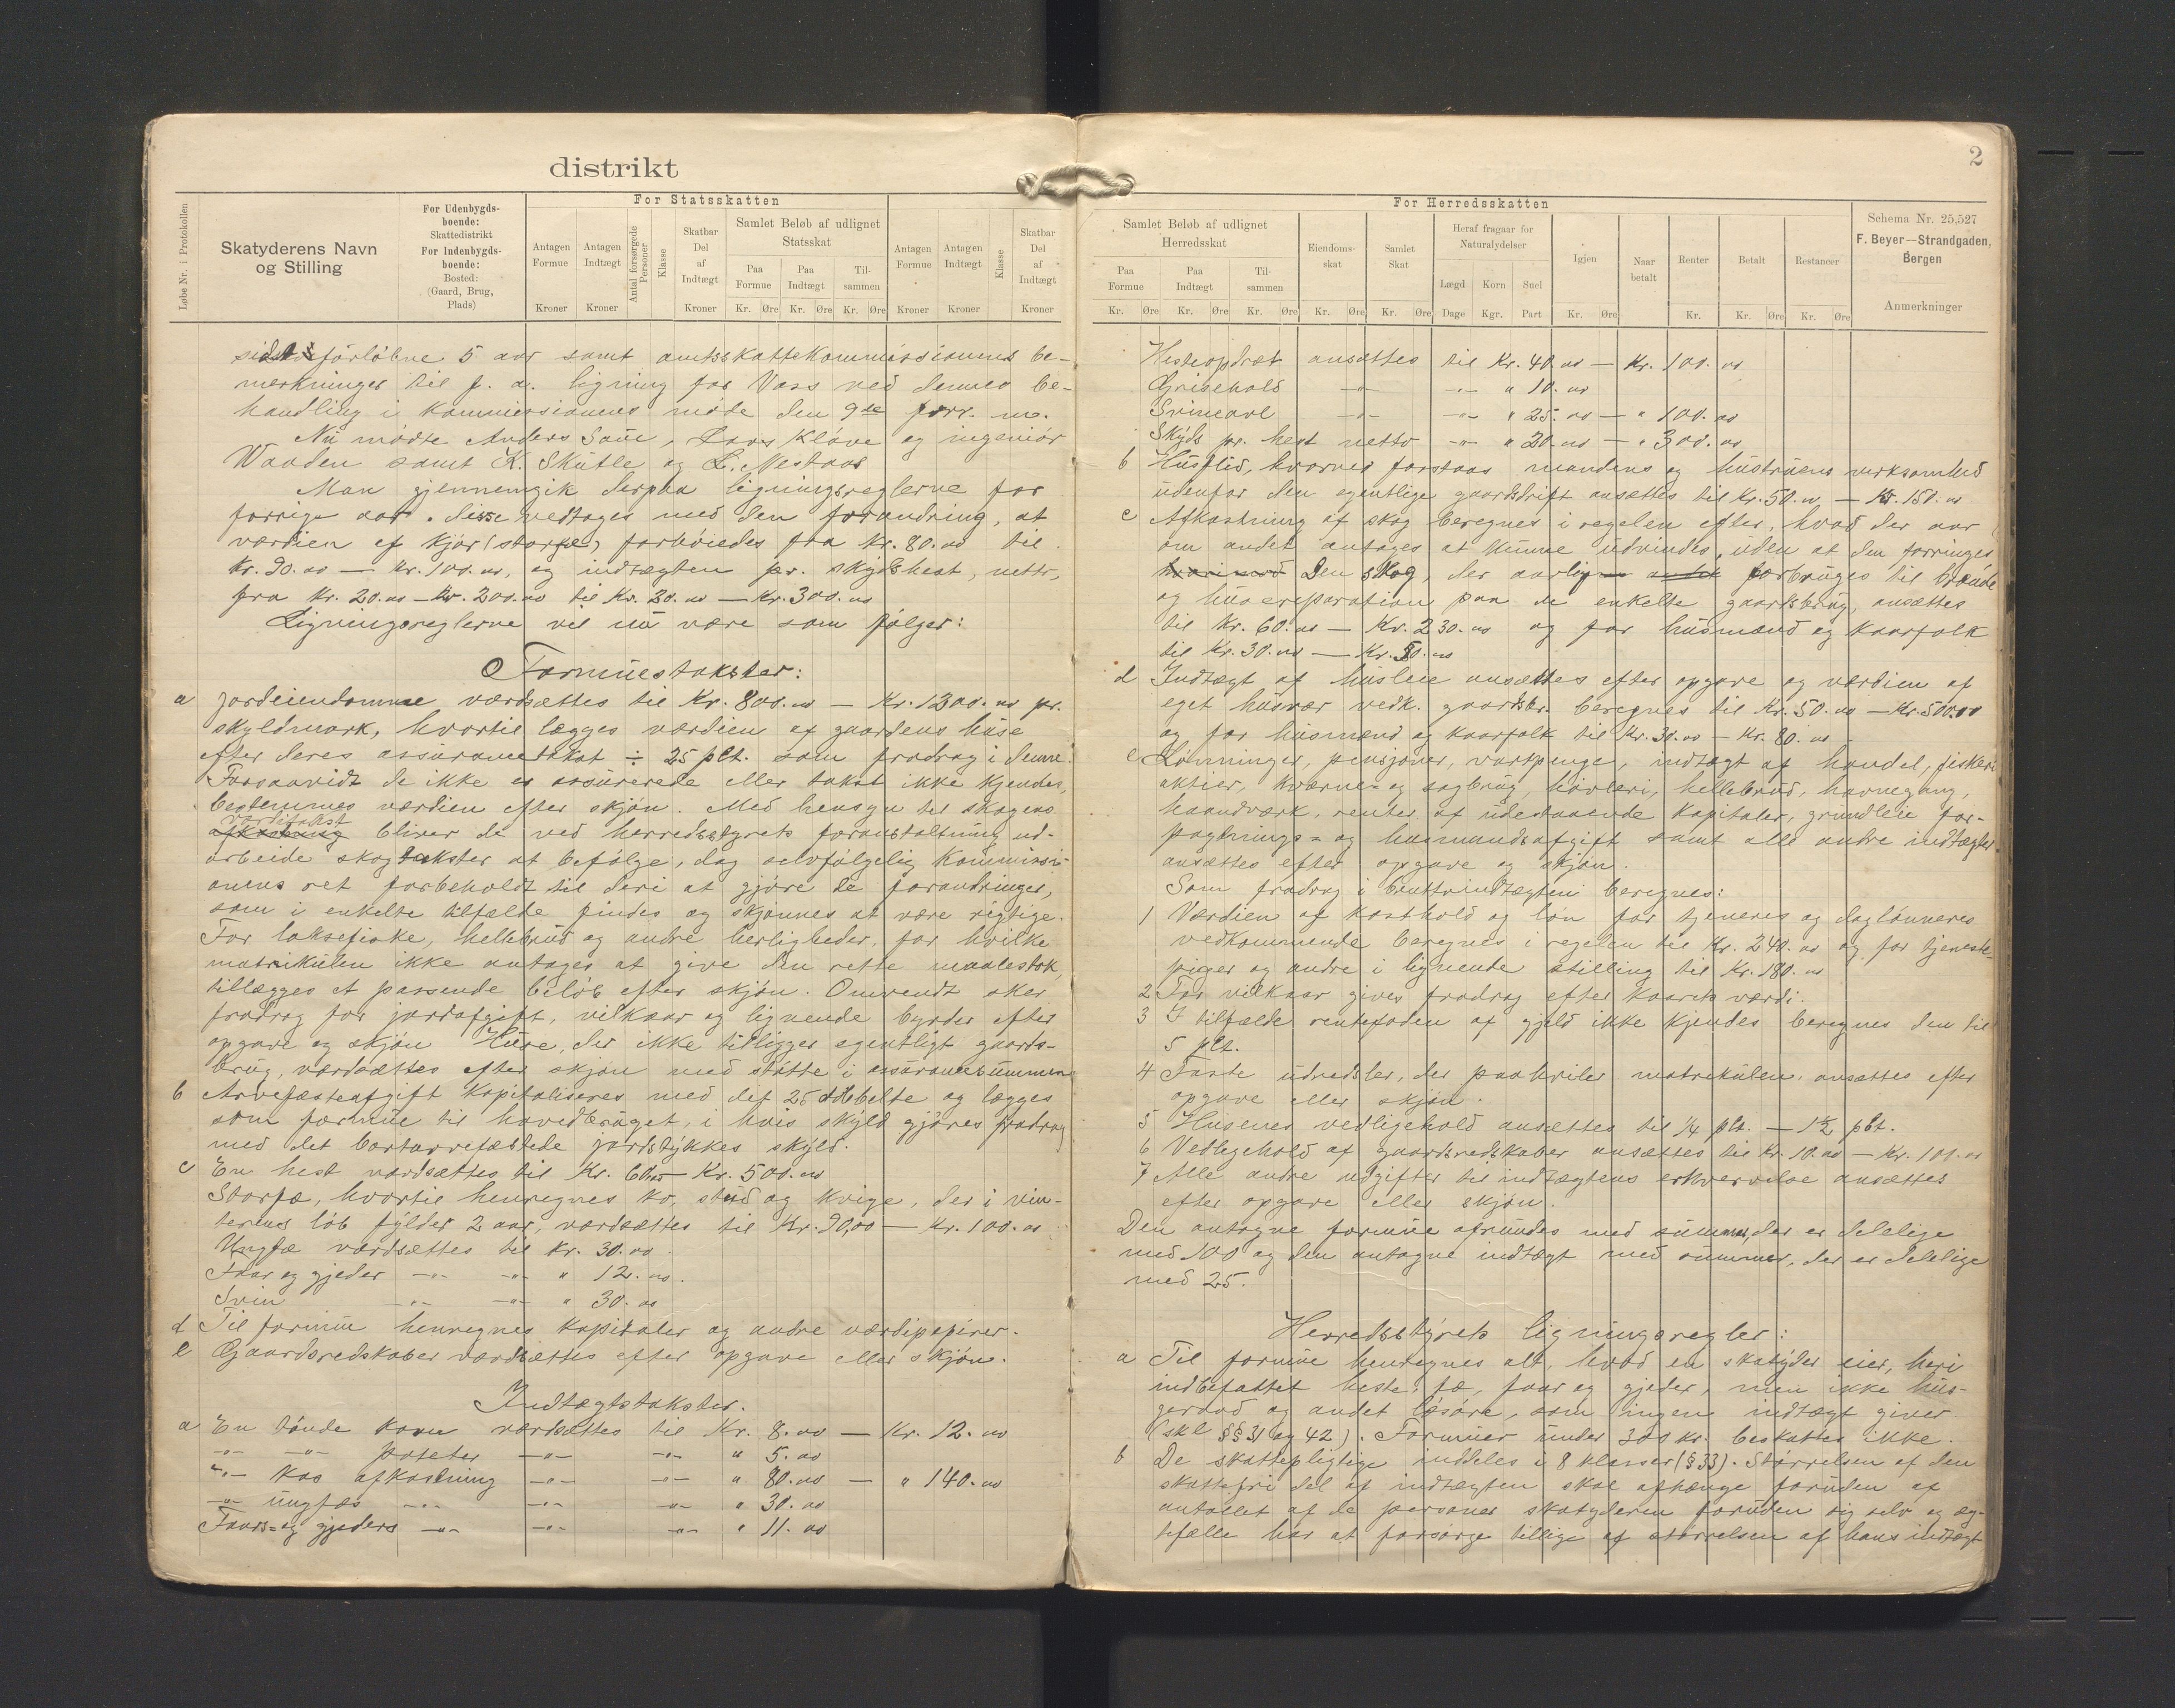 distrikt
Løbe Nr. i Protokollen
Skatyderens Navn
og Stilling
For Udenbygds-
boende:
Skattedistrikt
For Indenbygds-
boende:
Bosted:
(Gaard, Brug,
Plads)
For Statsskatten
Antagen
Formue
Kroner
Antagen
Indtægt
Kroner
Antal forsørgede
Personer
Klasse
Skatbar
Del
af
Indtægt
Kroner
Samlet Beløb af udlignet
Statsskat
Paa
Formue
Paa
Indtægt
Til-
sammen
Kr. Øre Kr. Øre Kr. Øre
Antagen
Formue
Kroner
Antagen
Indtægt
Kroner
Klasse
Skatbar
Del
af
Indtægt
Kroner
sidst forløbne 5 aar samt amtsskattekommissionens be-
merkninger til f. a. ligning for Voss ved dennes be-
handling i kommissionens møde den 9de forr. m.
Nu mødte Anders Saue, Lars Kløve og ingeniør
Waaden samt K. Skutle og L. Nestaas
Man gjennemgik derpaa ligningsreglerne for
forrige aar. Disse vedtages med den forandring, at
værdien af kjør (storfæ) forhøiedes fra Kr. 80.00 til
Kr. 90.00 — Kr. 100.00, og indtægten pr. skydshest, netto,
fra Kr. 20.00 — Kr. 200.00 til Kr. 20.00 — Kr. 300.00
Ligningsreglerne vil nu være som følger:
Formuestakster:
a Jordeiendomme værdsættes til Kr. 800.00 — Kr. 1300.00 pr.
skyldmark, hvortil lægges værdien af gaardens huse
efter deres assurancetakst ÷ 25 pct. som fradrag i denne.
Forsaavidt de ikke er assurerede eller takst ikke kjendes,
bestemmes værdien efter skjøn. Med hensyn til skogens
værditakst
afkastning bliver de ved herredsstyrets foranstaltning ud-
arbeide skogtakster at befølge, dog selvfølgelig kommissi-
onens ret forbeholdt til deri at gjøre de forandringer,
som i enkelte tilfælde findes og skjønnes at være rigtige.
For laksefiske, hellebrud og andre herligheder, for hvilke
matrikulen ikke antages at give den rette maalestok,
tillægges et passende beløb efter skjøn. Omvendt sker
fradrag for jordafgift, vilkaar og lignende byrder efter
opgave og skjøn Huse, der ikke tilligger egentligt gaards-
brug, værdsættes efter skjøn med støtte i assurancesummen
b Arvefæsteafgift kapitaliseres med det 25 dobbelte og lægges
som formue til hovedbruget, i hvis skyld gjøres fradrag
med det bortarvefæstede jordstykkes skyld.
c En hest værdsættes til Kr. 60.00 — Kr. 500.00
Storfæ, hvortil henregnes ko, stud og kvige, der i vin-
terens løb fylder 2 aar, værdsættes til Kr. 90,00 — Kr. 100.00
Ungfæ værdsættes til Kr. 30.00
Faar og gjeder —"— —"— " 12.00
Svin —"— —"— " 30.00
d Til formue henregnes kapitaler og andre værdipapirer.
e Gaardsredskaber værdsættes efter opgave eller skjøn.
Indtægtstakster.
a En tønde korn værdsættes til Kr. 8.00 — Kr. 12.00
—"— —"— poteter —"— —"— " 5.00
—"— kos afkastning —"— —"— " 80.00 — " 140.00
—"— ungfæs —"— —"— —"— " 30.00
Faars- og gjeders —"— —"— —"— " 11.00
2
For Herredsskatten
Samlet Beløb af udlignet
Herredsskat
Paa
Formue
Paa
Indtægt
Til-
sammen
Kr. Øre Kr. Øre Kr. Øre
Eiendoms-
skat
Kr. Øre
Samlet
Skat
Kr. Øre
Heraf fragaar for
Naturalydelser
Lægd Korn Snel
Dage Kgr. Part
Igjen
Kr. Øre
Naar
betalt
Renter
Kr.
Betalt
Kr. Øre
Restancer
Kr. Øre
Schema Nr. 25,527
F. Beyer—Strandgaden,
Bergen
Anmerkninger
Hesteopdræt ansættes til Kr. 40.00 — Kr. 100.00
Grisehold —"— —"— " 10.00
Svineavl —"— —"— " 25.00 — " 100.00
Skyds pr. hest netto —"— " 20.00 — " 300.00
b Husflid, hvorved forstaas mandens og hustruens virksomhed
udenfor den egentlige gaardsdrift ansættes til Kr. 50.00 — Kr. 150.00
c Afkastning af skog beregnes i regelen efter, hvad der aar
om andet antages at kunne udvindes, uden at den forringes
Den skog, der aarlig forbruges til brænde
og husereparation paa de enkelte gaardsbrug, ansættes
til Kr. 60.00 — Kr. 230.00 og for husmænd og kaarfolk
til Kr. 30.00 — Kr. 50.00
d Indtægt af husleie ansættes efter opgave og værdien af
eget husvær vedk. gaardsbr. beregnes til Kr. 50.00 — Kr. 500.00
og for husmænd og kaarfolk til Kr. 30.00 — Kr. 80.00
e Lønninger, pensjoner, vartpenge, indtægt af handel, fiskeri
aktier, kværne- og sagbrug, høvleri, hellebrud, havnegang,
haandværk, renter af udestaaende kapitaler, grundleie for-
pagtnings- og husmandsafgift samt alle andre indtægter
ansættes efter opgave og skjøn.
Som fradrag i bruttoindtægten beregnes:
1 Værdien af kosthold og løn for tjeneres og daglønneres
vedkommende beregnes i regelen til Kr. 240.00 og for tjeneste-
piger og andre i lignende stilling til Kr. 180.00
2 For vilkaar gives fradrag efter kaarets værdi.
3 I tilfælde rentefoden af gjeld ikke kjendes beregnes den til
5 pct.
4 Faste udredsler, der paahviler matrikulen, ansættes efter
opgave eller skjøn.
5 Husenes vedligehold ansættes til 1/4 pct. — 1 1/2 pct.
6 Vedligehold af gaardsredskaber ansættes til Kr. 10.00 — Kr. 100.00
7 Alle andre udgifter til indtægtens erhvervelse ansættes
efter opgave eller skjøn.
Den antagne formue afrundes med summer, der er delelige
med 100 og den antagne indtægt med summer, der er delelige
med 25.
Herredsstyrets ligningsregler:
a Til formue henregnes alt, hvad en skatyder eier, heri
indbefattet heste, fæ, faar og gjeder, men ikke hus-
geraad og andet løsøre, som ingen indtægt giver
(skl §§ 31 og 42). Formuer under 300 kr. beskattes ikke.
b De skattepligtige inddeles i 8 klasser (§ 33). Størrelsen af den
skattefri del af indtægten skal afhænge foruden af
antallet af de personer skatyderen foruden sig selv og æg-
tefælle har at forsørge tillige af størrelsen af hans indtægt